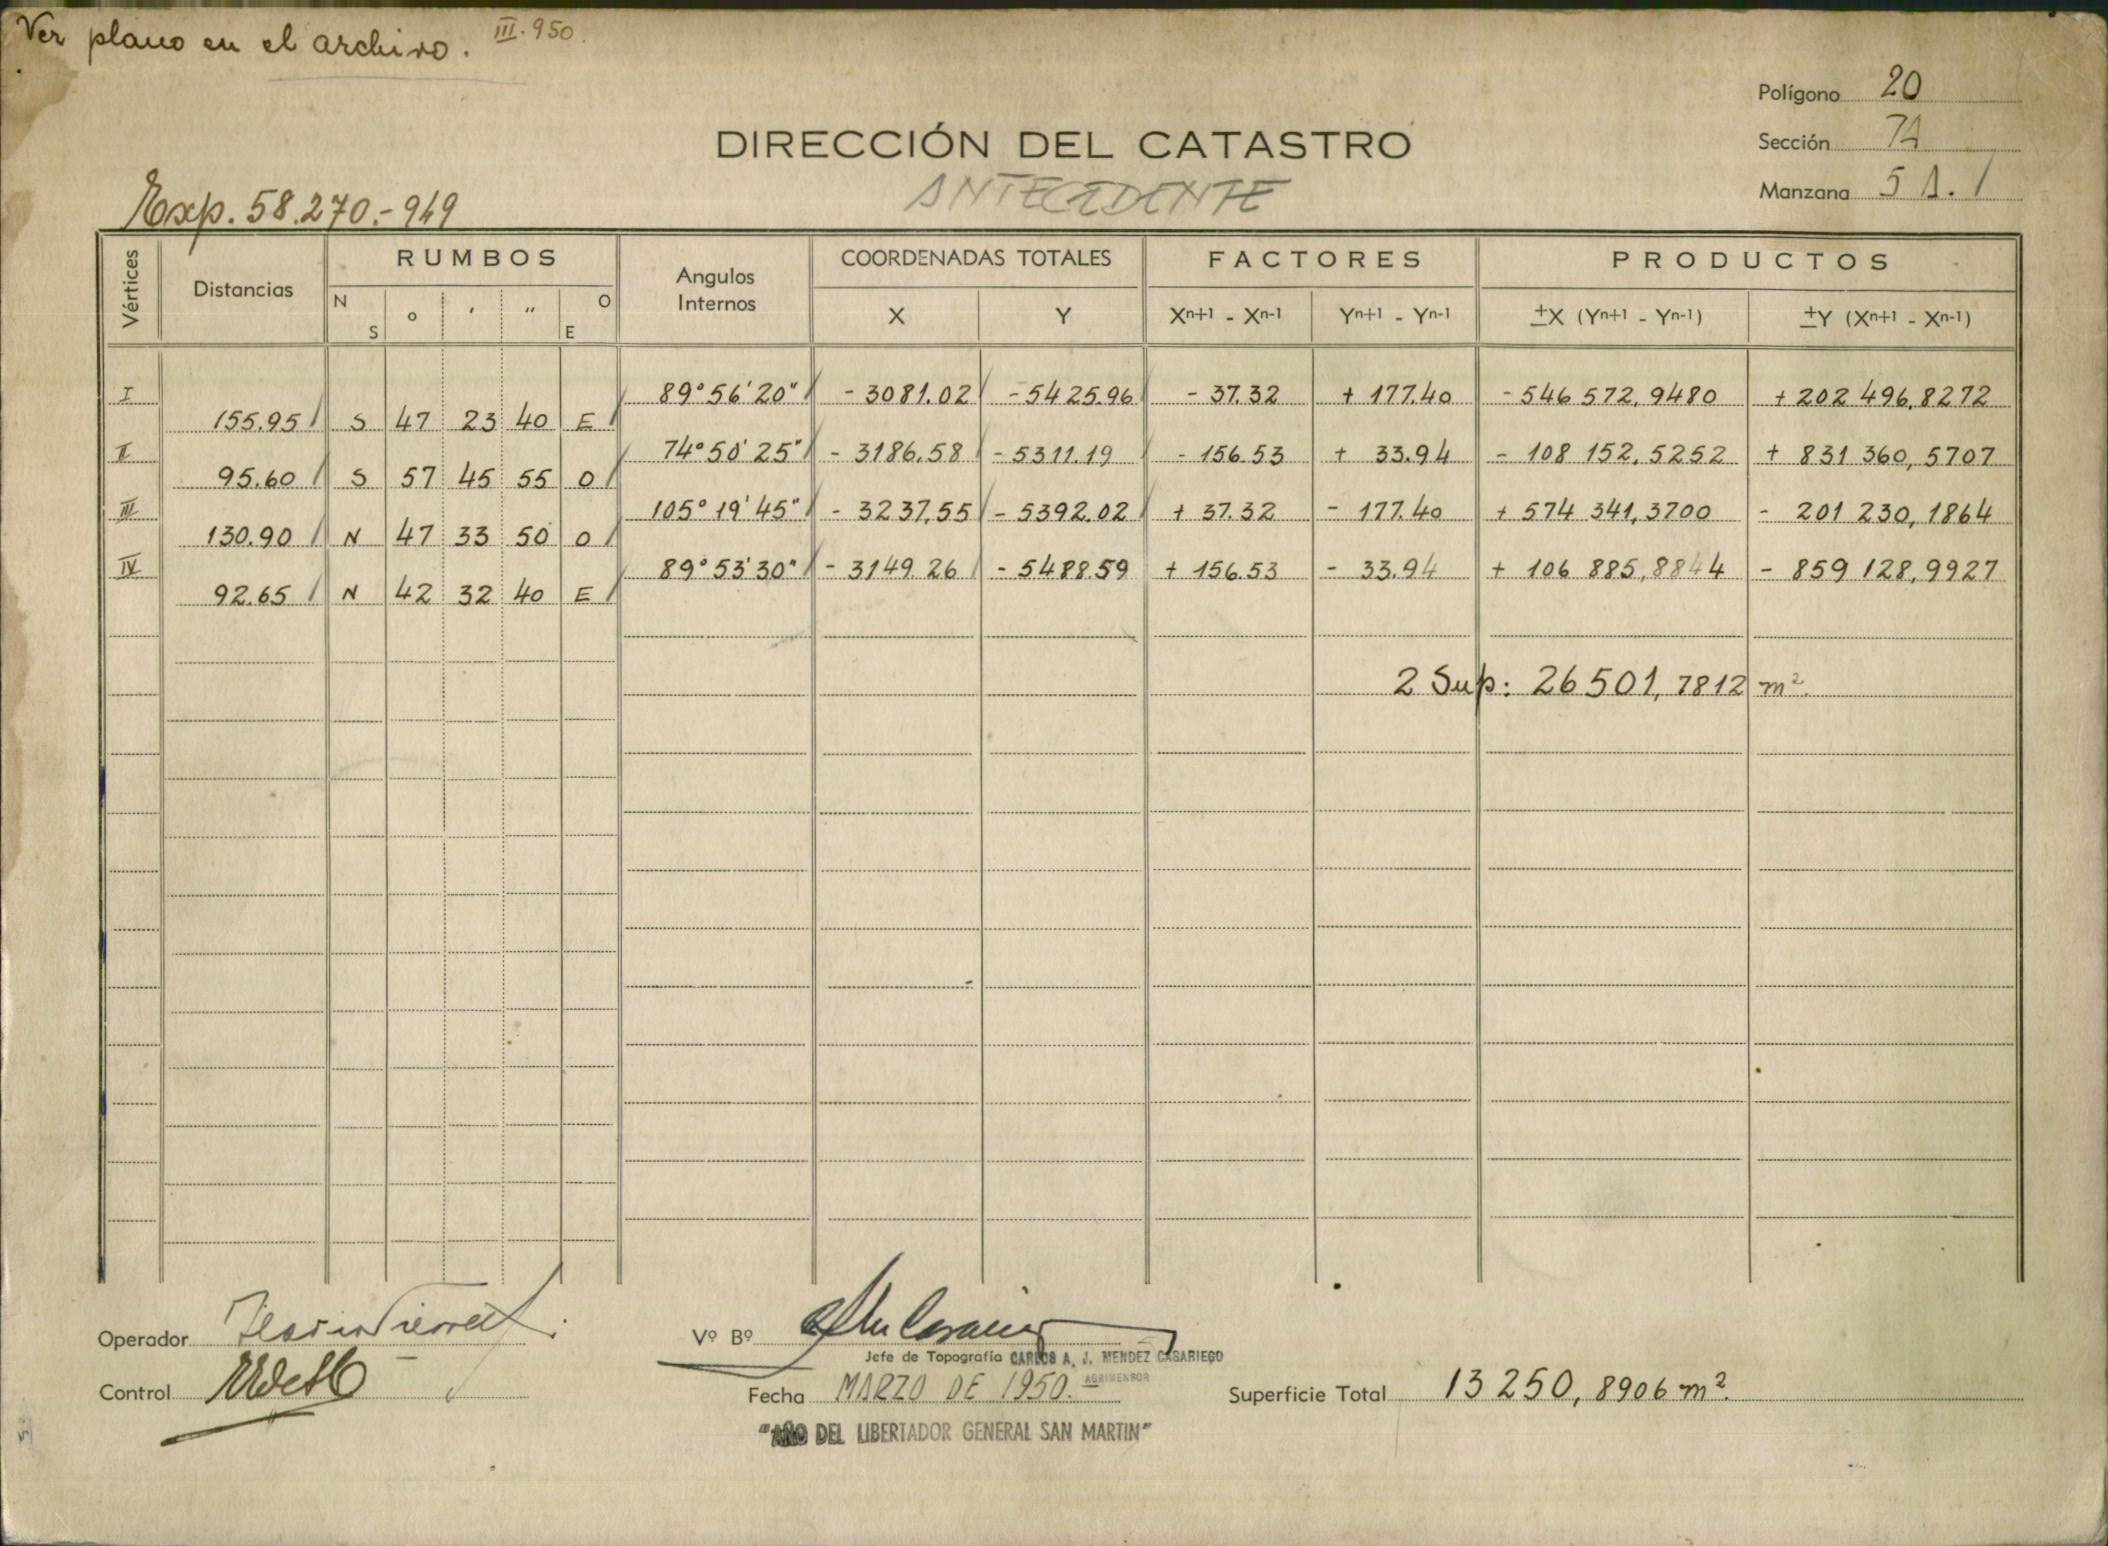 Ver plano en el archivo. III.950.
Polígono 20
DIRECCIÓN DEL CATASTRO
Sección 7A
ANTECEDENTE
Manzana 5
Exp. 58.270.-949
Vértices Distancias RUMBOS Angulos Internos COORDENADAS TOTALES FACTORES PRODUCTOS
N S o ' " O E X Y Xn+1 - Xn-1 Yn+1 - Yn-1 ±X (Yn+1 - Yn-1) ±Y (Xn+1 - Xn-1)
I 89°56'20" - 3081.02 - 5425.96 - 37.32 + 177.40 - 546 572,9480 + 202 496,8272
155.95 S 47 23 40 E
II 74°50'25" - 3186.58 - 5311.19 - 156.53 + 33.94 - 108 152,5252 + 831 360,5707
95.60 S 57 45 55 O
III 105°19'45" - 3237,55 - 5392.02 + 37.32 - 177.40 + 574 341,3700 - 201 230,1864
130.90 N 47 33 50 O
IV 89°53'30" - 3149.26 - 5488.59 + 156.53 - 33.94 + 106 885,8844 - 859 128,9927
92.65 N 42 32 40 E
2 Sup: 26501,7812 m².
Operador
Vº Bº
Jefe de Topografía CARLOS A. J. MENDEZ CASARIEGO
AGRIMENSOR
Control
Fecha MARZO DE 1950.-
Superficie Total 13250,8906 m².
"AÑO DEL LIBERTADOR GENERAL SAN MARTIN"